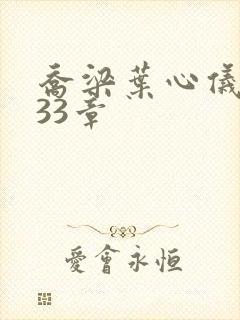 喬梁葉心儀
33章
愛會永恒